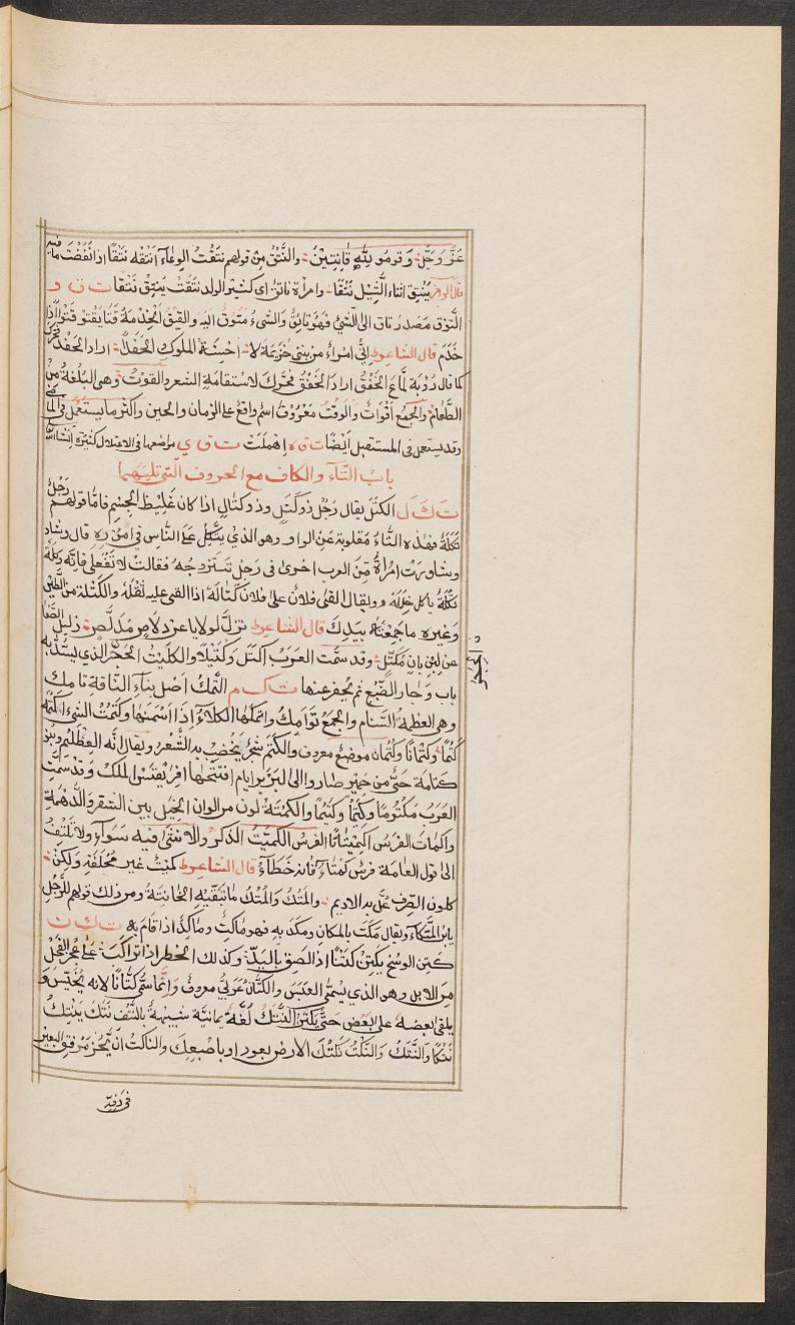 عَزَّ وَجَلَّ وَقُومُو لِلّٰهِ قَانِتِيْنَ والنَّتْقُ مِنْ قولهم نتَقْتُ الوِعَاءَ اَنتقه نتْقًا اذا نَفَضْتَ ما فيه
يَنْتِقُ اثناء الشَّلِيْل نَتْقًا وامراة ناتق اى كثير الولد نتَقَتْ يَنتِق نَتْقًا ت ق و
التَّوْق مَصْدَر تاق الى الشئ فهُوَ تائق والشىء مَتُوق اليه والقَتْو الخِدْمة قَتَا يَقْتو قَتْوًا اذا
خَدَم قال الشاعر اِنّى امرُؤٌ من بنى خُزَيمَة لا اُحْسِنُ قَتْوَ الملوك والحَفَدَا اراد الحَفْد
كما قال رُؤبة لَمَّاع الخَفَق اراد الخَفْق فحَرّك لاستقامة الشعر والقوتُ وهى البُلغة من
الطَّعام والجمع اَقْوات والوقتُ مَعْرُوف اسم واقع على الزمان والحين واكثر ما يستعمل فى الماضى
وقد يستعمل فى المستقبل اَيْضًا ت ق ه اهملَتْ ت ق ى مواضعها فى الاعتلال كثيرة انشاالله
بابُ التّاء والكاف مع الحروف التى تليهما
ت ك ل الكَتَلُ يقال رَجُل ذو كَتَلٍ وذو كَتالٍ اذا كان غَلِيظ الجِسْم فامّا قولهم رَجُل
تُكَلَة فهذه التاء مَقلوبة عَن الواو وهو الذى يَتَّكِل عَلى النّاس فى امُوره قال
وشاورَتِ امراةٌ مِنَ العرب اخرىٰ فى رَجل تتزوّجه فقالت لا تفْعلى فانّه وُكَلَة
تُكَلَة ياكل خِلَلَه ويقال القى فلان على فلان كَتالَهُ اذا القى عليه ثِقْلَه والكُتلة من الطين
وَغيره ما جمعْتَه بيَدِك قال الشاعر
وقد سمَّت العَرَبُ اَكْتَل وَكُتَيْلًا والكَلِيْتُ الحَجَر الذى يُسَدُّ به
باب وَجَار الضَّبُع ثم يُحفر عنها ت ك م التَّمْكُ اَصْل بِناءِ النَّاقة تامِك
وهى العظيمةُ السَّنام والجمعُ تَوامِكُ واتمكها الكلاءُ اذا اَسْمَنها وكتَمْتُ الشىء اَكْتمُه
كَتْمًا وكِتْمانًا وكُتْمان موضِع معروف والكَتَم شجَرٌ يَخْضِب به الشَّعْر ويقال انّه العِظْلِم وبنو
كُتامة حَىّ من حِمْيَر صاروا الى البَرْبَر ايّام افتَتَحَها اِفرِيقِيس الملِك وقد سمَّتِ
العَرَبُ مَكْتُومًا وكُتَيْمًا وكُتَيْمَة والكُمْتَة لون من الوان الخَيْل بين الشقرة والدّهمة
واكْماتّ الفرَس اكْمِيتاتًا الفرَسُ الكُمَيْتُ الذكر والانثى فيه سَواء ولا تَلتفِتْ
الى قول العامة فرَس كَمْتاء فانه خَطاء قال الشاعر كُمَيْتٌ غير مُحْلَفَةٍ وَلٰكِنْ
كلَون الصِّرْف عُلَّ به الاديم والمُتْك والمَتْكُ ما تُبَقّيه الخاتِنَة ومن ذلك قولهم للرَّجُل
يا ابن المَتْكاء ويقال مَكَتَ بالمكان ومكَدَ به فهو ماكِت وماكِد اذا قام به ت ك ن
كَتِن الوسَخ يَكْتَن كَتَنًا اذا لصِق باليَد وكذلك الخَطر اذا تراكَبَ على عَجُز الفَحْل
مِن الابل وهو الذى يُسَمَّى العَبَس والكَتّان عَرَبِىّ معروف وَانّما سُمّى كَتّانًا لانه يُخَيَّس وَ
يلقى بعضه على بَعْض حَتّى يَكْتَن النَّتْك لُغة يمانية شَبيهة بالنَّتْف نَتَك ينْتِك
نَتْكًا والنَّتْكُ والنَّكْتُ نَكْتُكَ الارْض بعود او باصْبعِك والناكِتُ اَنْ يَحُزّ مِرْفق البعير
فى دَفّه